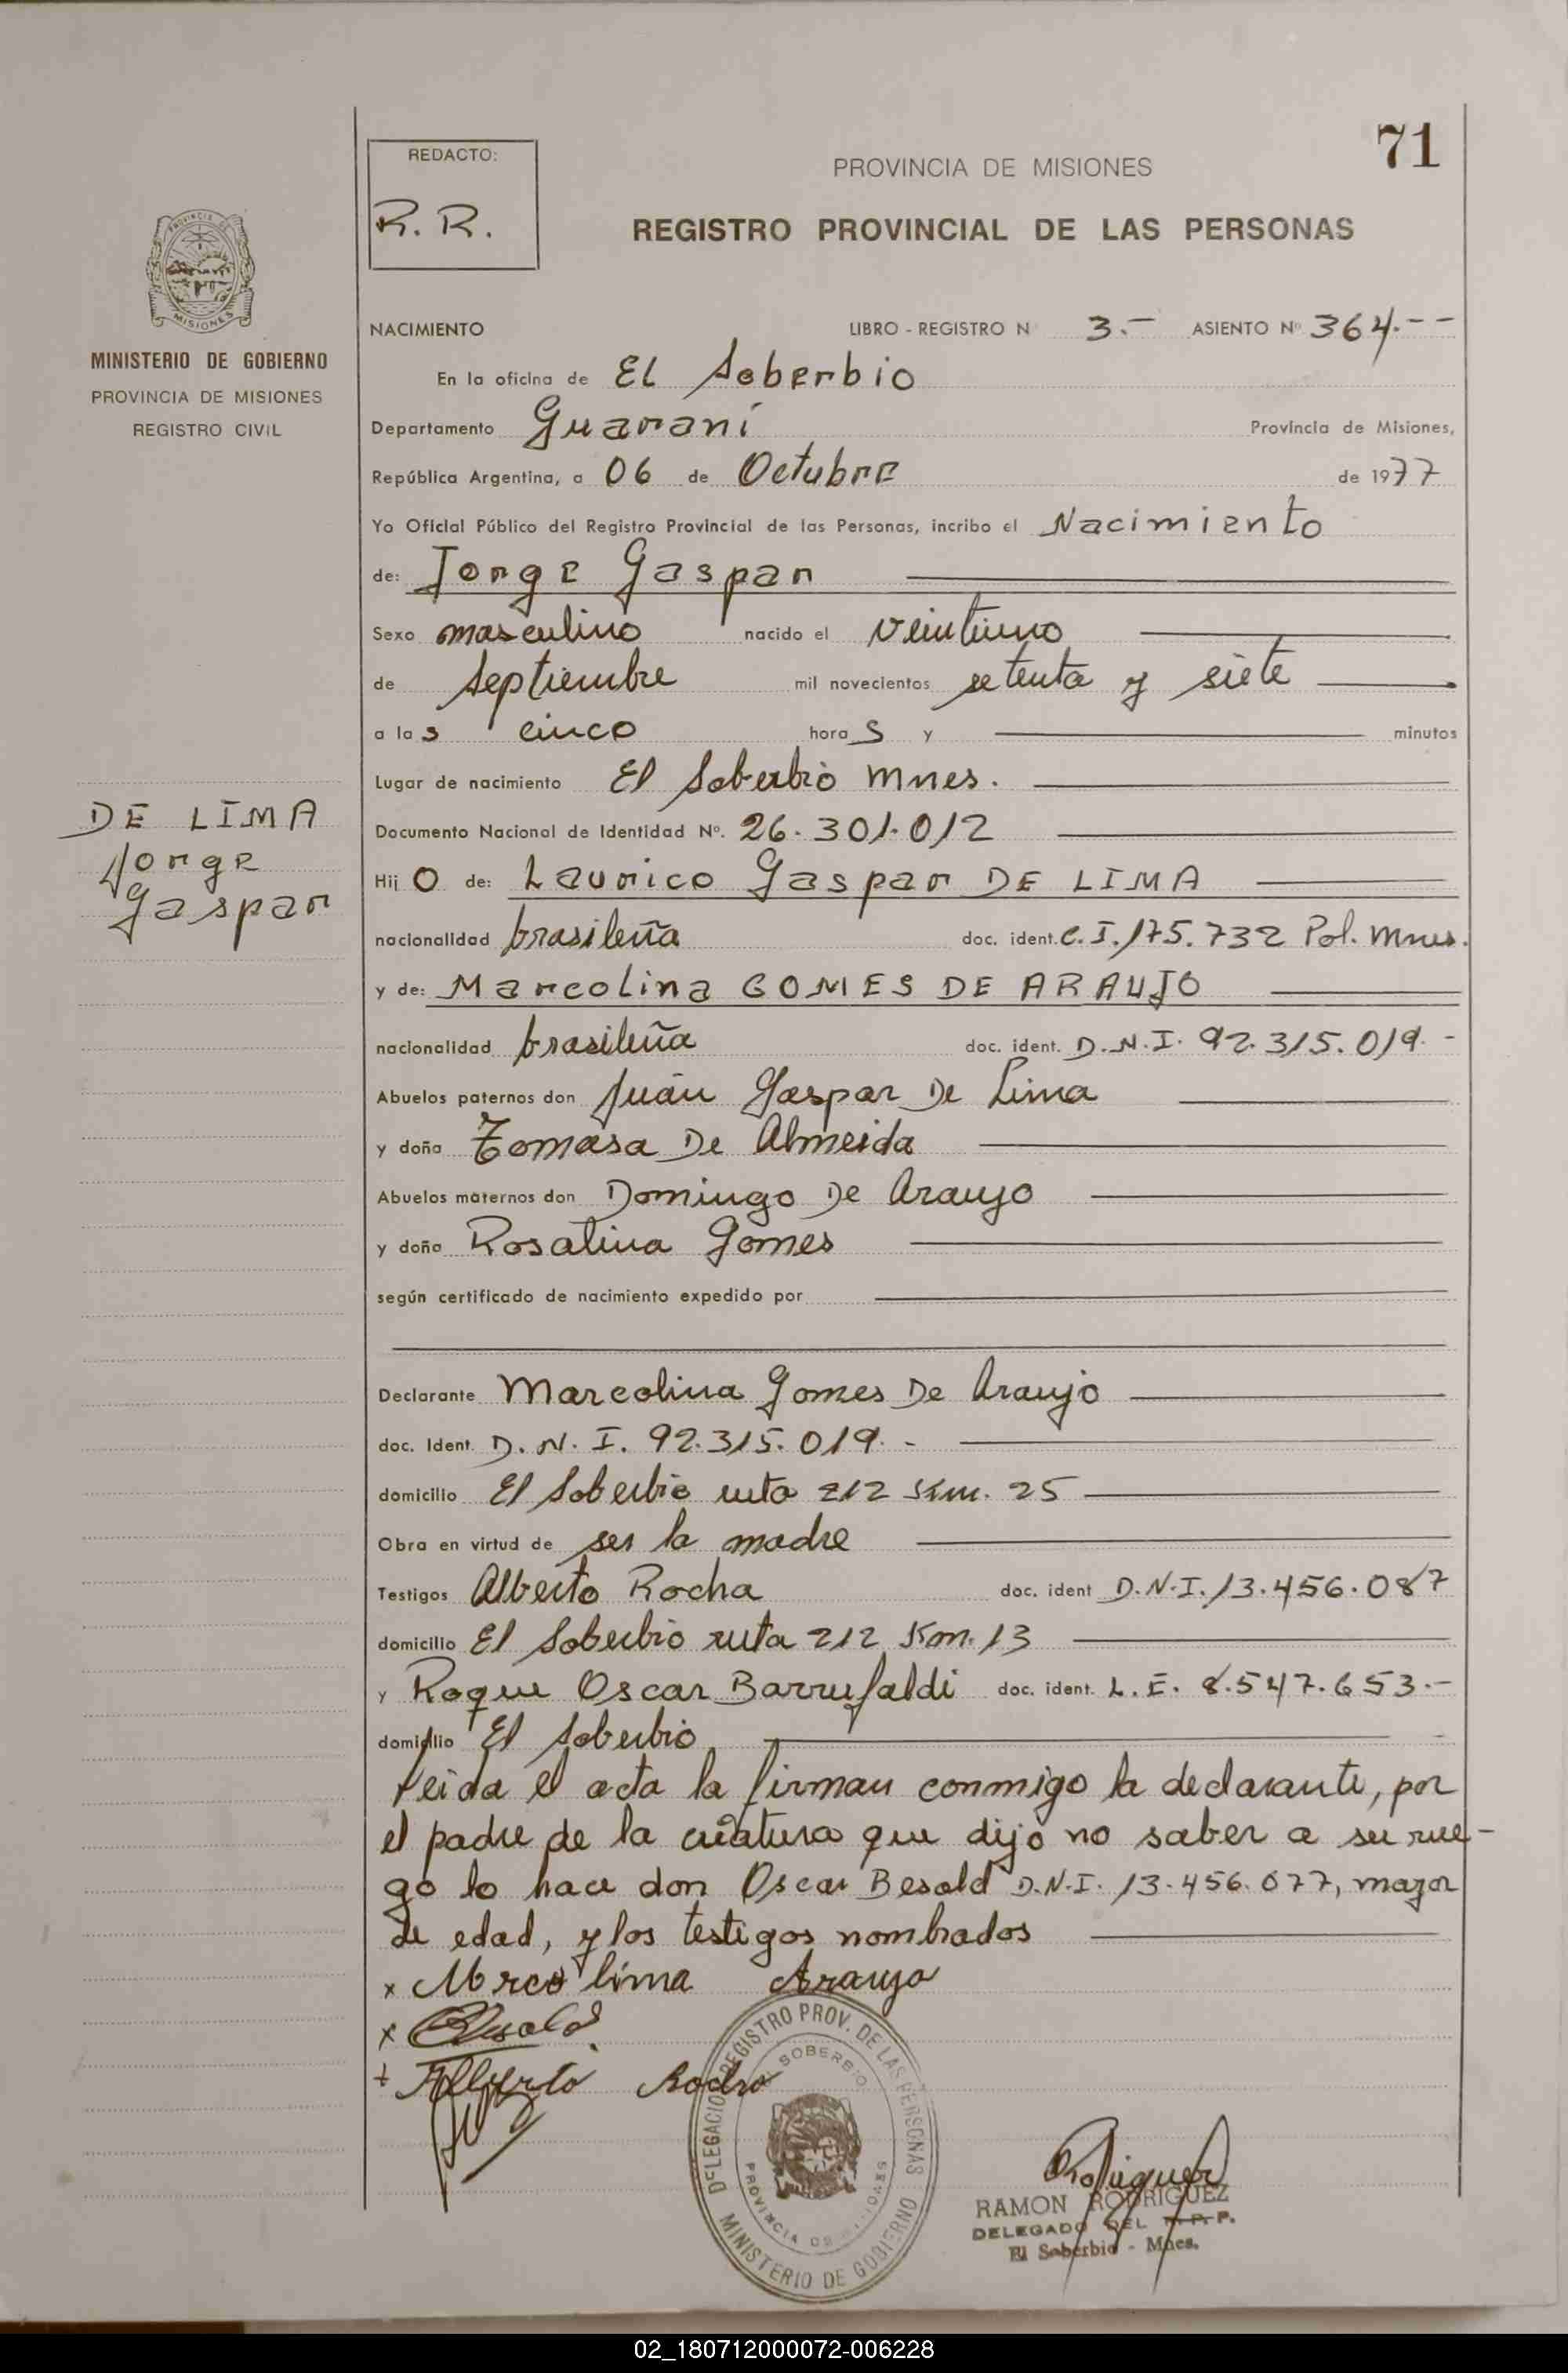 71
REDACTO:
R. R.
PROVINCIA DE MISIONES
REGISTRO PROVINCIAL DE LAS PERSONAS
PROVINCIA
MISIONES
MINISTERIO DE GOBIERNO
PROVINCIA DE MISIONES
REGISTRO CIVIL
NACIMIENTO LIBRO - REGISTRO N 3.- ASIENTO Nº 364.--
En la oficina de El Soberbio
Departamento Guaraní Provincia de Misiones,
República Argentina, a 06 de Octubre de 1977
Yo Oficial Público del Registro Provincial de las Personas, incribo el Nacimiento
de: Jorge Gaspar
Sexo masculino nacido el veintiuno
de septiembre mil novecientos setenta y siete
a las cinco horas y minutos
Lugar de nacimiento El Soberbio Mnes.
DE LIMA
Jorge
Gaspar
Documento Nacional de Identidad Nº. 26.301.012
Hijo de: Laurico Gaspar DE LIMA
nacionalidad brasileña doc. ident. C.I. 175.732 Pol. Mnes.
y de: Marcolina GOMES DE ARAUJO
nacionalidad brasileña doc. ident. D.N.I. 92.315.019.-
Abuelos paternos don Juán Gaspar De Lima
y doña Tomasa De Almeida
Abuelos maternos don Domingo De Araujo
y doña Rosalina Gomes
según certificado de nacimiento expedido por
Declarante Marcolina Gomes De Araujo
doc. Ident. D.N.I. 92.315.019.-
domicilio El Soberbio ruta 212 Km. 25
Obra en virtud de ser la madre
Testigos Alberto Rocha doc. ident D.N.I. 13.456.087
domicilio El Soberbio ruta 212 Km. 13
y Roque Oscar Barrufaldi doc. ident. L.E. 8.547.653.-
domicilio El Soberbio
Leida el acta la firman conmigo la declarante, por
el padre de la criatura que dijo no saber a su rue-
go lo hace don Oscar Besold D.N.I. 13.456.077, mayor
de edad, y los testigos nombrados
x Mrcolima Araujo
x Besold
+ Alberto Rocha
DELEGACION REGISTRO PROV. DE LAS PERSONAS
SOBERBIO
PROVINCIA DE MISIONES
MINISTERIO DE GOBIERNO
Rodriguez
RAMON RODRIGUEZ
DELEGADO DEL R.P.P.
El Soberbio - Mnes.
02_180712000072-006228